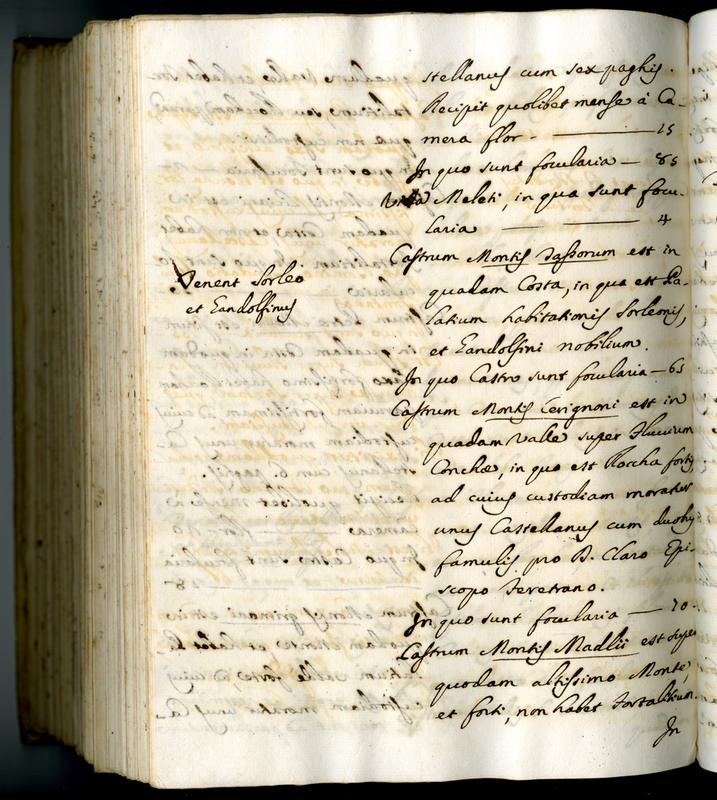 stellanus cum sex paghis.
Recipit quolibet mense à Ca-
mera flor. — 15
In quo sunt focularia — 85
Villa Meleti, in qua sunt focu-
laria — — 4
Castrum Montis Tassorum est in
quadam Costa, in qua est Pa-
latium habitationis Sorleonis,
et Gandolfini nobilium.
In quo Castro sunt focularia — 65
Castrum Montis Cerignoni est in
quadam Valle super Fluvium
Conchæ, in quo est Roccha fortis
ad cuius custodiam moratur
unus Castellanus cum duobus
famulis pro D. Claro Epi-
scopo Feretrano.
In quo sunt focularia — 70.
Castrum Montis Madlii est super
quodam altissimo Monte,
et forti, non habet Fortalitium.
In
Tenent Sorleo
et Gandolfinus